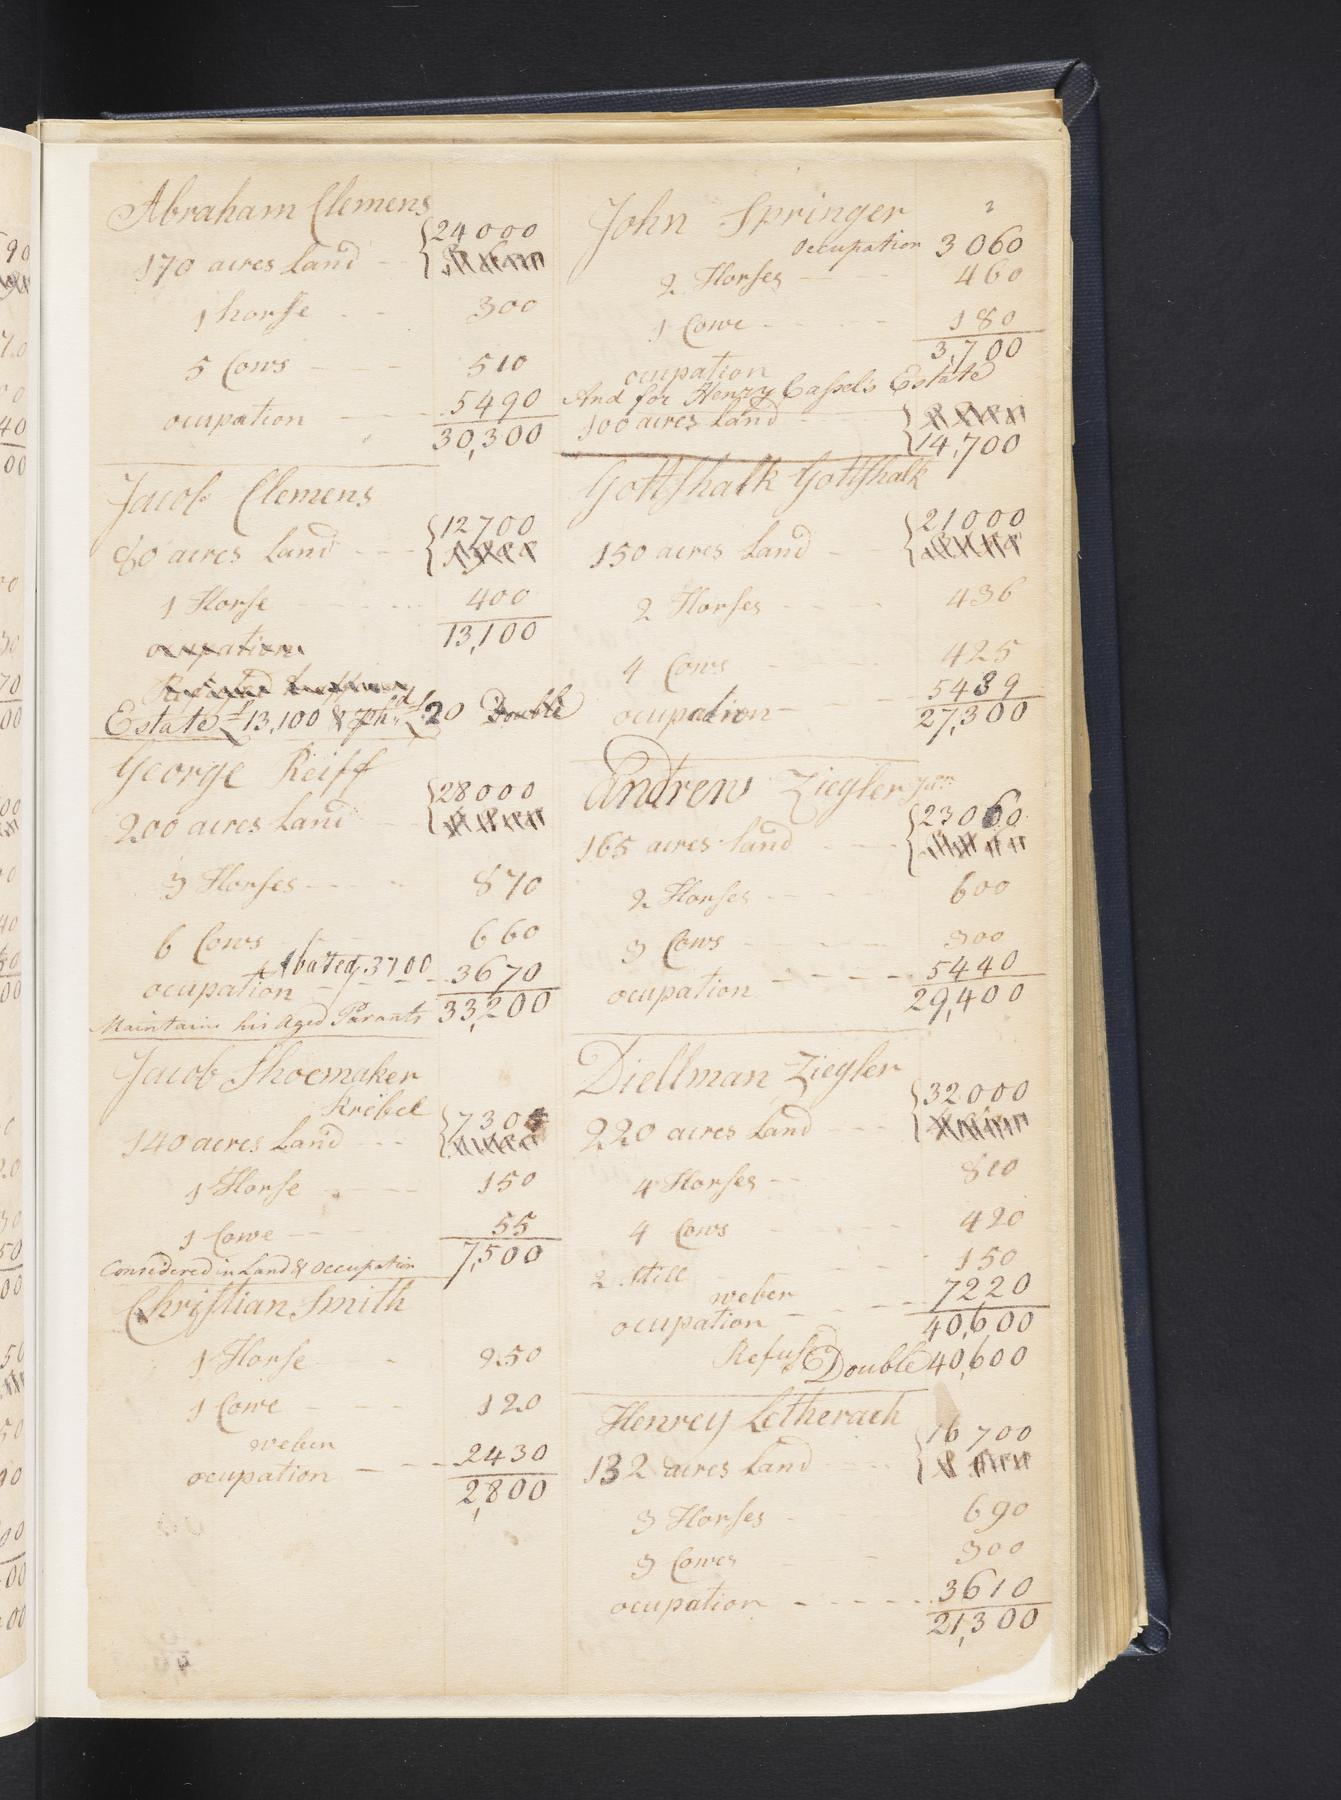 Abraham Clemens
24000
170 acres Land
1 horse 300
5 Cows 510
ocupation 5490
30,300
Jacob Clemens
12700
80 acres Land
1 Horse 400
13,100
ocupation
Estate £13,100 & 20 Double
George Reiff
28000
200 acres Land
3 Horses 870
6 Cows 660
Abated 3700
ocupation 3670
Maintains his Aged Parants 33,200
Jacob Shoemaker
Kribel
7300
140 acres Land
1 Horse 150
1 Cowe 55
7,500
Considered in Land & Occupation
Christian Smith
1 Horse 250
1 Cowe 120
weber
ocupation 2430
2,800
John Springer
Occupation 3060
2 Horses 460
1 Cowe 180
3,700
ocupation
And for Henry Cassel's Estate
100 acres Land
14,700
Gottshalk Gottshalk
21000
150 acres Land
2 Horses 436
4 Cows 425
ocupation 5439
27,300
Andrew Ziegler Jun
23060
165 acres Land
2 Horses 600
3 Cows 300
ocupation 5440
29,400
Diellman Ziegler
32000
220 acres Land
4 Horses 810
4 Cows 420
2 Still 150
weber
ocupation 7220
40,600
Refuse Double 40,600
Henrey Letherach
16700
132 acres Land
3 Horses 690
3 Cowes 300
ocupation 3610
21,300